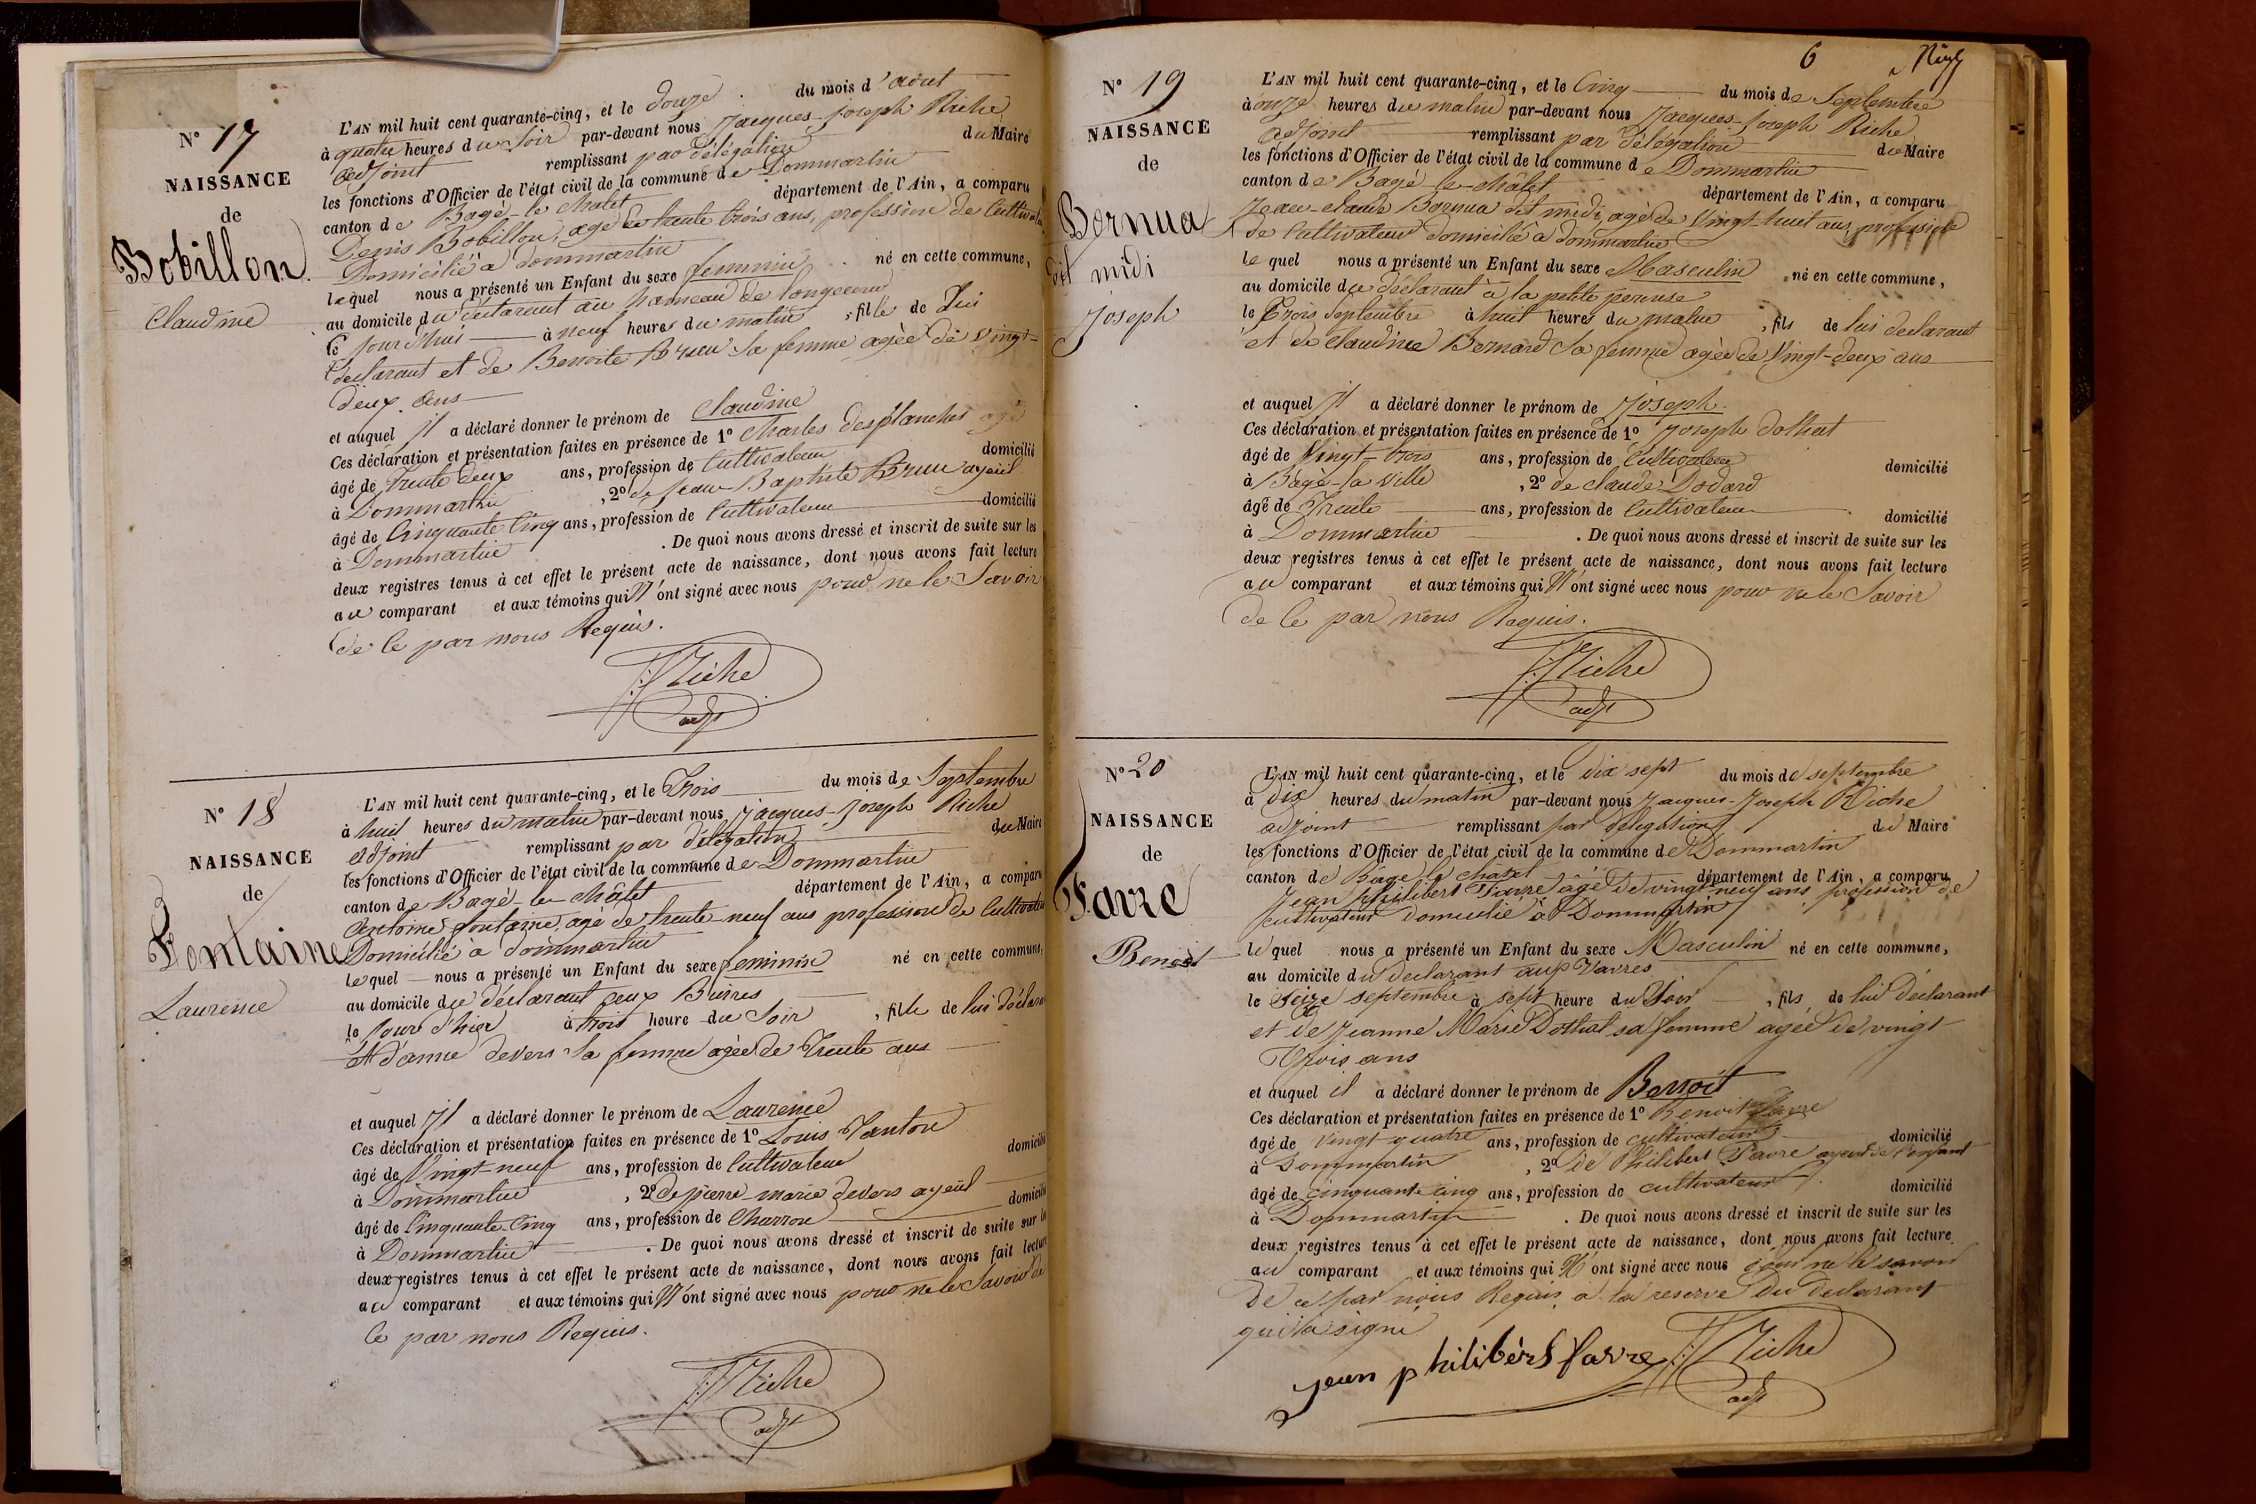 N° 17
NAISSANCE
de
Bobillon
Claudine
L'AN mil huit cent quarante-cinq, et le douze du mois d'août
à quatre heures du soir par-devant nous Jacques-Joseph Riche
adjoint remplissant par délégation du Maire
les fonctions d'Officier de l'état civil de la commune de Dommartin
canton de Bagé-le-châtel département de l'Ain, a comparu
Denis Bobillon, agé de trente trois ans, profession de Cultivateur
Domicilié à dommartin
lequel nous a présenté un Enfant du sexe feminin né en cette commune,
au domicile du déclarant au hameau de
le jour d'hui à neuf heures du matin, fille de Lui
déclarant et de Benoite Brun sa femme agée de vingt-
deux ans
et auquel Il a déclaré donner le prénom de Claudine
Ces déclaration et présentation faites en présence de 1° Charles desplanches agé
âgé de trente deux ans, profession de Cultivateur domicilié
à Dommartin, 2° de Jean Baptiste Brun ayeul
âgé de Cinquante Cinq ans, profession de Cultivateur domicilié
à Dommartin. De quoi nous avons dressé et inscrit de suite sur les
deux registres tenus à cet effet le présent acte de naissance, dont nous avons fait lecture
au comparant et aux témoins qui N'ont signé avec nous pour ne le Savoir
de Ce par nous Requis.
JJRiche
adjt
N° 18
NAISSANCE
de
Fontaine
Laurence
L'AN mil huit cent quarante-cinq, et le Trois du mois de Septembre
à huit heures du matin par-devant nous Jacques-Joseph Riche
adjoint remplissant par délégation du Maire
les fonctions d'Officier de l'état civil de la commune de Dommartin
canton de Bagé-le-Châtel département de l'Ain, a comparu
Antoine fontaine, agé de trente neuf ans profession de Cultivateur
Domicilié à dommartin
lequel nous a présenté un Enfant du sexe feminin né en cette commune,
au domicile du déclarant aux
le jour d'hier à trois heure du Soir, fille de lui déclarant
Et d'anne devers sa femme agée de Trente ans
et auquel Il a déclaré donner le prénom de Laurence
Ces déclaration et présentation faites en présence de 1° Louis Tanton
âgé de Vingt-neuf ans, profession de Cultivateur domicilié
à Dommartin, 2° de pierre-marie devers ayeul
âgé de Cinquante-Cinq ans, profession de Charron domicilié
à Dommartin. De quoi nous avons dressé et inscrit de suite sur les
deux registres tenus à cet effet le présent acte de naissance, dont nous avons fait lecture
au comparant et aux témoins qui N'ont signé avec nous pour ne le Savoir de
Ce par nous Requis.
JJRiche
adjt
6
N° 19
NAISSANCE
de
Bornua
dit midi
Joseph
L'AN mil huit cent quarante-cinq, et le Cinq du mois de Septembre
à onze heures du matin par-devant nous Jacques-Joseph Riche
adjoint remplissant par délégation du Maire
les fonctions d'Officier de l'état civil de la commune de Dommartin
canton de Bagé-le-châtel département de l'Ain, a comparu
Jean-claude Bornua dit midi, agé de Vingt-huit ans, profession
de Cultivateur domicilié à dommartin
lequel nous a présenté un Enfant du sexe Masculin né en cette commune,
au domicile du déclarant à la petite
le Trois Septembre à huit heures du matin, fils de lui déclarant
et de Claudine Bernard Sa femme agée de Vingt-deux ans
et auquel Il a déclaré donner le prénom de Joseph.
Ces déclaration et présentation faites en présence de 1° Joseph dothat
âgé de Vingt-trois ans, profession de Cultivateur domicilié
à Bagé-la ville, 2° de claude Dodard
âgé de Trente ans, profession de Cultivateur domicilié
à Dommartin. De quoi nous avons dressé et inscrit de suite sur les
deux registres tenus à cet effet le présent acte de naissance, dont nous avons fait lecture
au comparant et aux témoins qui N'ont signé avec nous pour ne le Savoir
de Ce par nous Requis.
JJRiche
adjt
N° 20
NAISSANCE
de
Favre
Benoit
L'AN mil huit cent quarante-cinq, et le dix sept du mois de septembre
à dix heures du matin par-devant nous Jacques-Joseph Riche
adjoint remplissant par délégation du Maire
les fonctions d'Officier de l'état civil de la commune de Dommartin
canton de Bagé le châtel département de l'Ain, a comparu
Jean philibert Favre âgé de vingt neuf ans profession de
cultivateur domicilié à Dommartin
lequel nous a présenté un Enfant du sexe Masculin né en cette commune,
au domicile du déclarant aux Vavres
le Seize septembre à sept heure du Soir, fils de lui déclarant
et de Jeanne Marie Dothat sa femme agée de vingt
Trois ans
et auquel il a déclaré donner le prénom de Benoit
Ces déclaration et présentation faites en présence de 1° Benoit Favre
âgé de vingt quatre ans, profession de cultivateur domicilié
à Dommartin, 2° de Philibert Favre ayeul de l'enfant
âgé de cinquante cinq ans, profession de cultivateur domicilié
à Dommartin. De quoi nous avons dressé et inscrit de suite sur les
deux registres tenus à cet effet le présent acte de naissance, dont nous avons fait lecture
au comparant et aux témoins qui N'ont signé avec nous pour ne le savoir
De ce par nous Requis a la réserve Du déclarant
qui a signé
jean philibert favre JJRiche
adjt